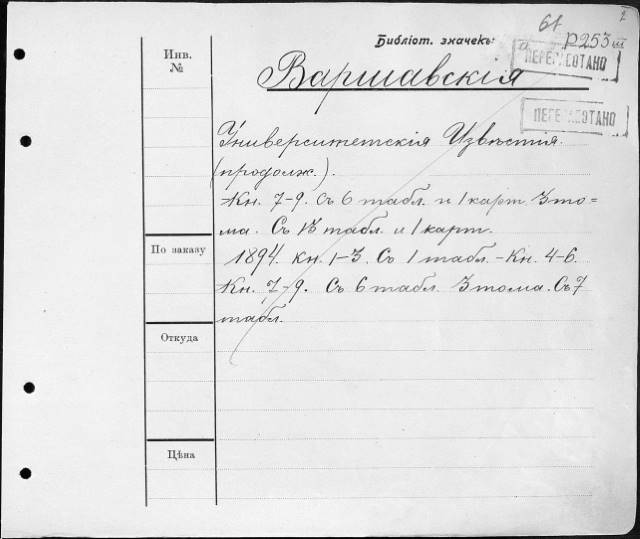 61 2
Библіот. значекъ: Р253 III
ПЕРЕРАБОТАНО
Инв.
№
Варшавскія
ПЕРЕРАБОТАНО
Университетскія Извѣстія.
(продолж.).
Кн. 7-9. Съ 6 табл. и 1 карт. 3 то=
ма. Съ 13 табл. и 1 карт.
По заказу
1894. кн. 1-3. Съ 1 табл. - Кн. 4-6.
Кн. 7-9. Съ 6 табл. 3 тома. Съ 7
табл.
Откуда
Цѣна